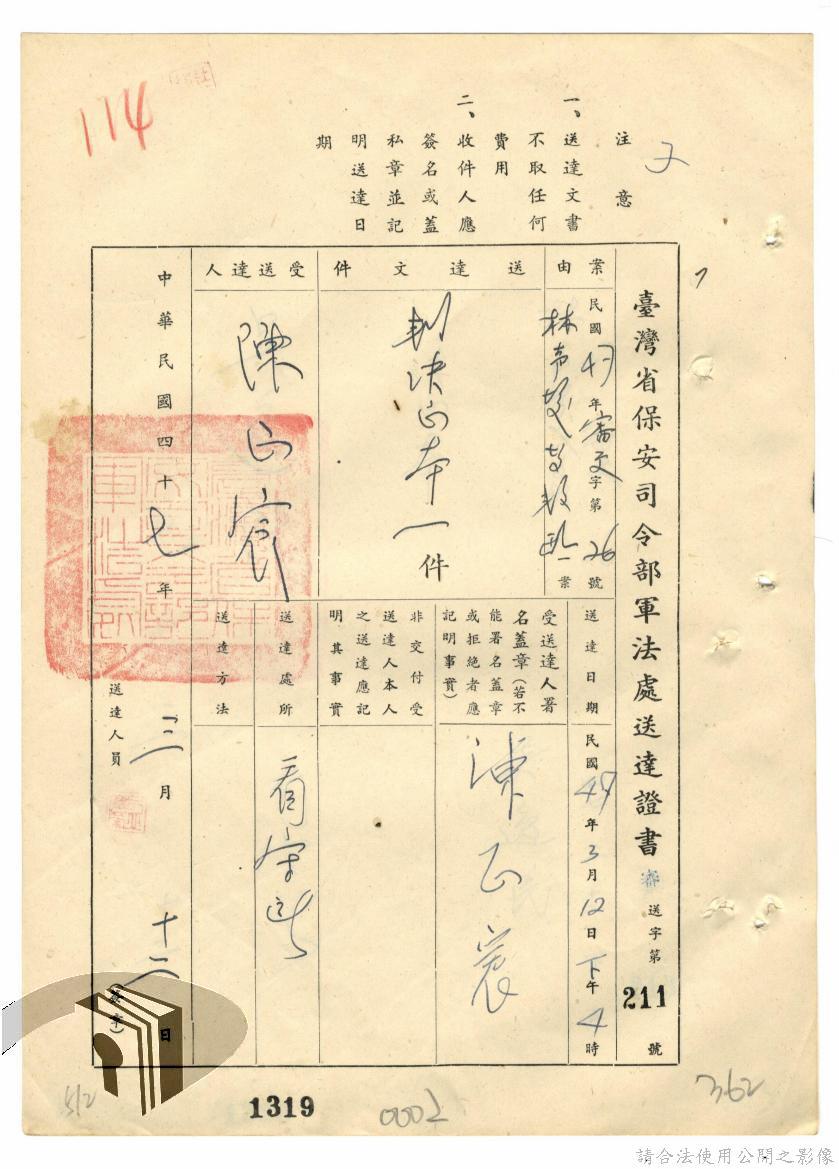 114
注意
一、送達文書
不取任何
費用
二、收件人應
簽名或蓋
私章並記
明送達日
期
臺灣省保安司令部軍法處送達證書
審
送字第
211
號
案由
民國47年審更字第26號
林
案
送達文件
判決正本一件
受送達人
陳正宸
送達日期
民國47年3月12日下午4時
受送達人署
名蓋章(若不
能署名蓋章
或拒絕者應
記明事實)
陳正宸
非交付受
送達人本人
之送達應記
明其事實
送達處所
看守所
送達方法
中華民國四十七年三月十二日
送達人員
(簽章)
512
1319
0002
362
請合法使用公開之影像